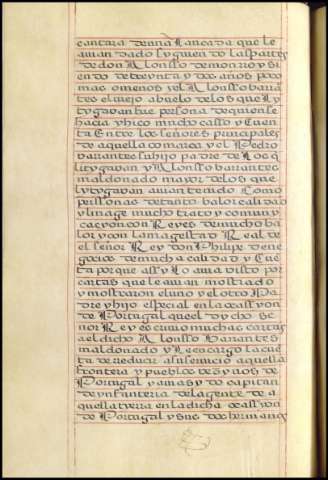 cantara de una Lancada que le
auian dado siguiendo las partes
de don Alonsso de monrroy si
endo de treynta y dos años poco
mas o menos y el Alonsso barran
tes el viejo abuelo de los que Ly
tygauan fue persona de quien se
hacia y hico mucho casso y Cuen
ta Entre los señores principales
de aquella comarca y el Pedro
barrantes su hijo padre de Los q
litygauan y Alonsso barrantes
maldonado mayor de los que
Lytygauan auian tenido Como
perssonas de tanto balor calidad
y linage mucho trato y comuny
cacyon con Reyes de mucho ba
lor y con la magestad Real de
el señor Rey don Philipe de ne
gocios de mucha calidad y Cuē
ta porque assy Lo auia bisto por
cartas que le auian mostrado
y mostraron el uno y el otro Pa
dre y hijo especial en la ocassyon
de Portugal que el dycho se
ñor Rey escriuio muchas cartas
a el dicho Alonsso Barrantes
maldonado y Le encargo la cuē
ta de reducir a su seruicio aquella
frontera y pueblos de
Portugal y ansi capitan
de ynfanteria de la gente de a
quella tyerra en la dicha ocassyon
de Portugal y sus dos hermanos